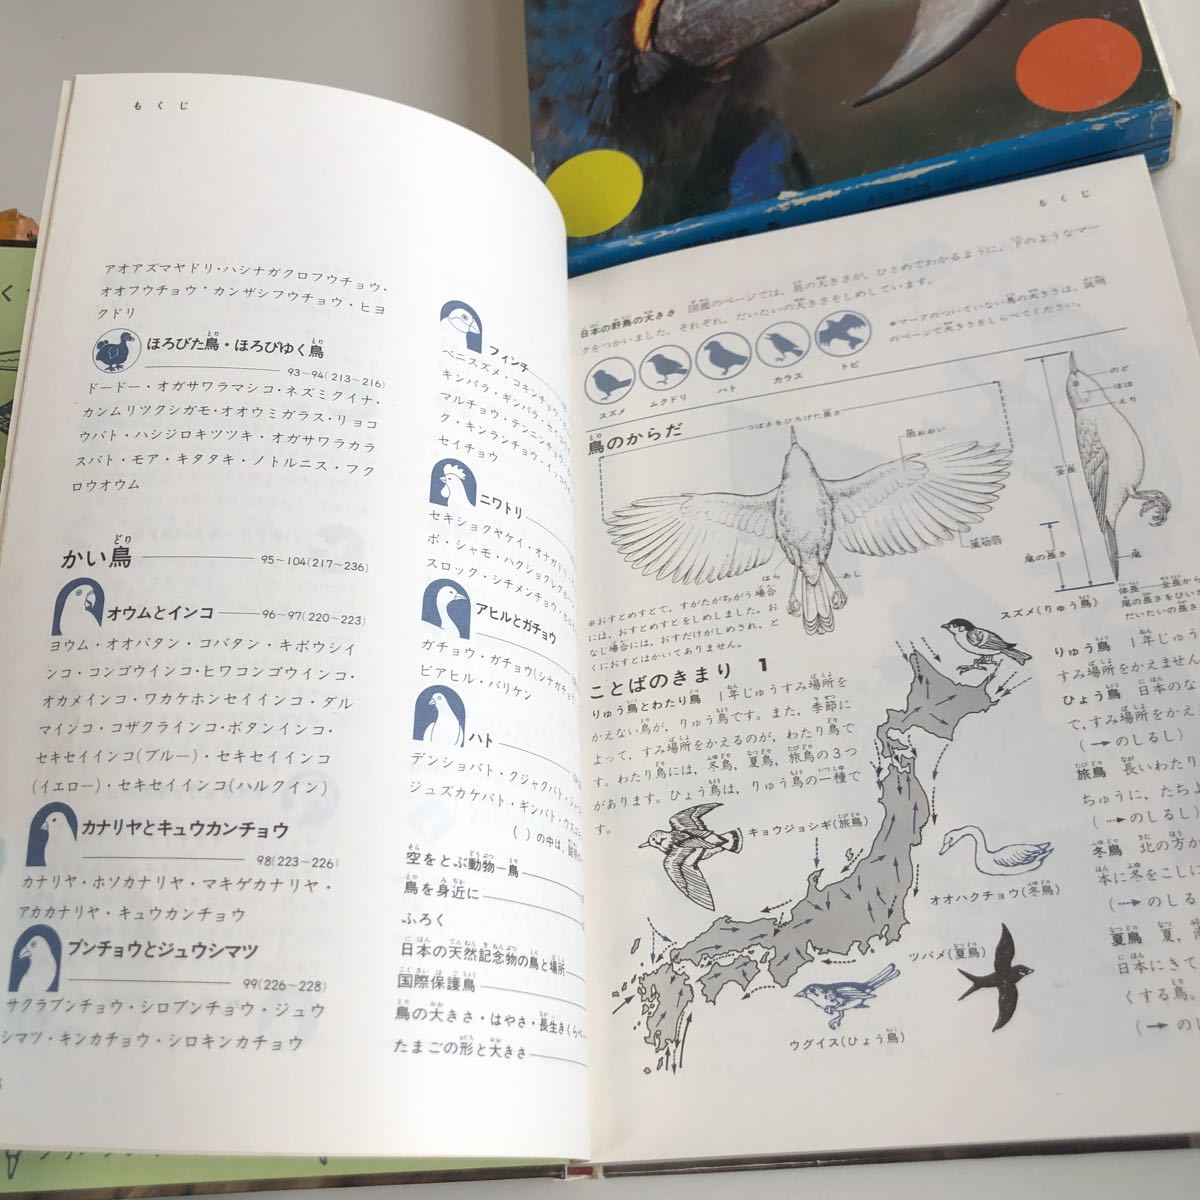 もくじ
アオアズマヤドリ・ハシナガクロフウチョウ・
オオフウチョウ・カンザシフウチョウ・ヒヨ
クドリ
ほろびた鳥・ほろびゆく鳥
93~94(213~216)
ドードー・オガサワラマシコ・ネズミクイナ・
カンムリツクシガモ・オオウミガラス・リョコ
ウバト・ハシジロキツツキ・オガサワラカラ
スバト・モア・キタタキ・ノトルニス・フク
ロウオウム
かい鳥 95~104(217~236)
オウムとインコ 96~97(220~223)
ヨウム・オオバタン・コバタン・キボウシイ
ンコ・コンゴウインコ・ヒワコンゴウインコ・
オカメインコ・ワカケホンセイインコ・ダル
マインコ・コザクラインコ・ボタンインコ・
セキセイインコ(ブルー)・セキセイインコ
(イエロー)・セキセイインコ(ハルクイン)
カナリヤとキュウカンチョウ
98(223~226)
カナリヤ・ホソカナリヤ・マキゲカナリヤ・
アカカナリヤ・キュウカンチョウ
ブンチョウとジュウシマツ
99(226~228)
サクラブンチョウ・シロブンチョウ・ジュウ
シマツ・キンカチョウ・シロキンカチョウ
フィンチ
ベニスズメ・コキンチョウ
キンパラ・ギンパラ・セイ
マルチョウ・テンニンチョウ
ク・キンランチョウ・イッコ
セイチョウ
ニワトリ
セキショクヤケイ・オナガドリ
ボ・シャモ・ハクショクレグホ
スロック・シチメンチョウ・ホロ
アヒルとガチョウ
ガチョウ・ガチョウ(シナガチョウ
ビアヒル・バリケン
ハト
デンショバト・クジャクバト・ジャコ
ジュズカケバト・ギンバト・ウスユキ
( )の中は、説明の
空をとぶ動物—鳥
鳥を身近に
ふろく
日本の天然記念物の鳥と場所
国際保護鳥
鳥の大きさ・はやさ・長生きくらべ
たまごの形と大きさ
もくじ
日本の野鳥の大きさ 図鑑のページでは、鳥の大きさが、ひとめでわかるように、下のようなマー
クをつかいました。それぞれ、だいたいの大きさをしめしています。
※マークのついていない鳥の大きさは、説明
のページで大きさをしらべてください。
スズメ
ムクドリ
ハト
カラス
トビ
鳥のからだ
つばさをひろげた長さ
雨おおい
風切羽
はら
あし
のど
ほほ
えり
全長
尾の長さ
尾
スズメ(りゅう鳥)
体長—全長から
尾の長さをひいた
だいたいの長さ
※おすとめすとで、すがたがちがう場合
には、おすとめすとをしめしました。お
なじ場合には、おすだけがしめされ、と
くにおすとはかいてありません。
ことばのきまり 1
りゅう鳥とわたり鳥 1年じゅうすみ場所を
かえない鳥が、りゅう鳥です。また、季節に
よって、すみ場所をかえるのが、わたり鳥で
す。わたり鳥には、冬鳥、夏鳥、旅鳥の3つ
があります。ひょう鳥は、りゅう鳥の一種で
す。
キョウジョシギ(旅鳥)
オオハクチョウ(冬鳥)
ツバメ(夏鳥)
ウグイス(ひょう鳥)
りゅう鳥 1年じゅう
すみ場所をかえません
ひょう鳥 日本のな
で、すみ場所をかえ
(→のしるし)
旅鳥 長いわたり
ちゅうに、たちよ
(のしるし)
冬鳥 北の方か
本に冬をこしに
(のしる
夏鳥 夏、南
日本にきて
くする鳥。
(→のし